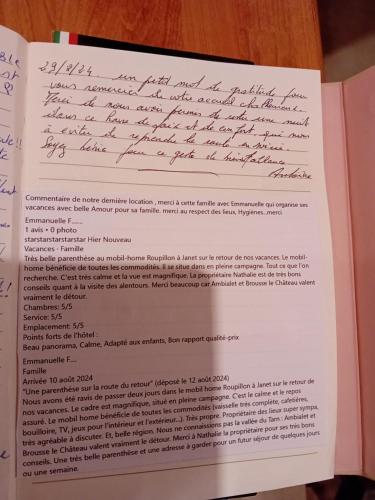 29/8/24 un petit mot de gratitude pour
vous remercier de votre accueil chaleureux.
Merci de nous avoir permis de votre une nuit
dans ce havre de paix et de confort, qui nous
a éviter de reprendre la route
Soyez béni pour ce geste de bienveillance
Antoine
Commentaire de notre dernière location , merci à cette famille avec Emmanuelle qui organise ses
vacances avec belle Amour pour sa famille. merci au respect des lieux, Hygiènes..merci
Emmanuelle F.....
1 avis • 0 photo
starstarstarstarstar Hier Nouveau
Vacances · Famille
Très belle parenthèse au mobil-home Roupillon à Janet sur le retour de nos vacances. Le mobil-
home bénéficie de toutes les commodités. Il se situe dans en pleine campagne. Tout ce que l'on
recherche. C'est très calme et la vue est magnifique. La propriétaire Nathalie est de très bons
conseils quant à la visite des alentours. Merci beaucoup car Ambialet et Brousse le Château valent
vraiment le détour.
Chambres: 5/5
Service: 5/5
Emplacement: 5/5
Points forts de l'hôtel :
Beau panorama, Calme, Adapté aux enfants, Bon rapport qualité-prix
Emmanuelle F....
Famille
Arrivée 10 août 2024
"Une parenthèse sur la route du retour" (déposé le 12 août 2024)
Nous avons été ravis de passer deux jours dans le mobil home Roupillon à Janet sur le retour de
nos vacances. Le cadre est magnifique, situé en pleine campagne. C'est le calme et le repos
assuré. Le mobil home bénéficie de toutes les commodités (vaisselle très complète, cafetières,
bouilloire, TV, jeux pour l'intérieur et l'extérieur...). Très propre. Propriétaire des lieux super sympa,
très agréable à discuter. Et, belle région. Nous ne connaissions pas la vallée du Tarn : Ambialet et
Brousse le Château valent vraiment le détour. Merci à Nathalie la propriétaire pour ses très bons
conseils. Une très belle parenthèse et une adresse à garder pour un futur séjour de quelques jours
ou une semaine.